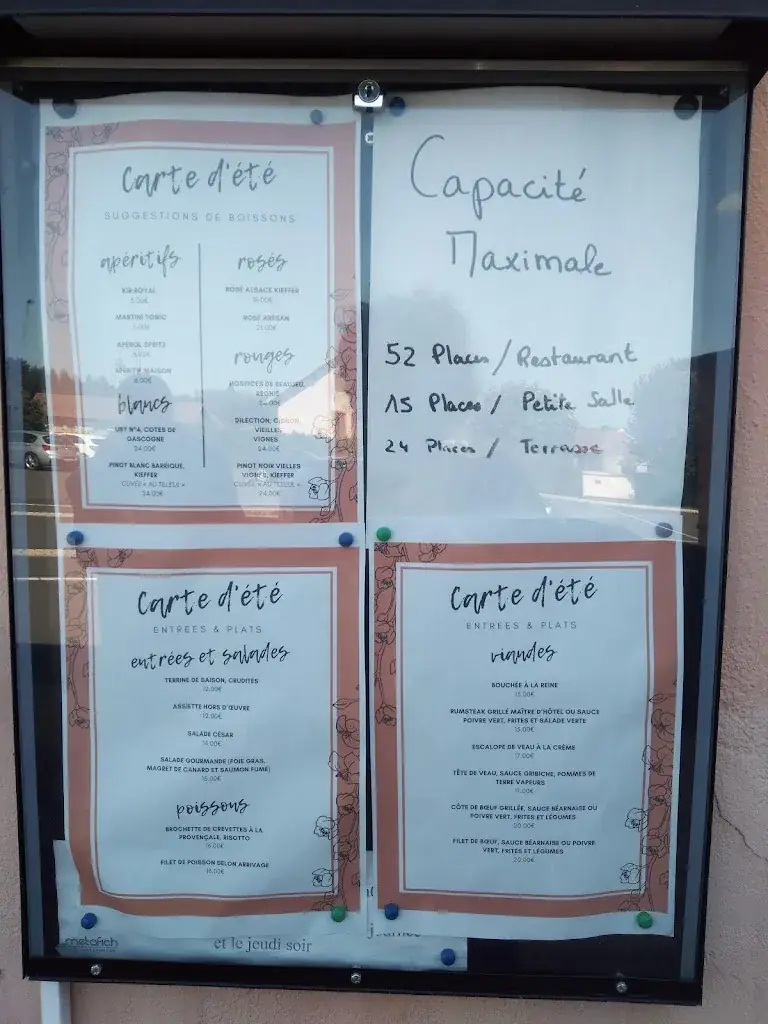 Carte d'été
SUGGESTIONS DE BOISSONS
apéritifs
KIR ROYAL
MARTINI TONIC
APEROL SPRITZ
MAISON
blancs
UBY N°4, COTES DE
GASCOGNE
24.00€
PINOT BLANC BARRIQUE,
KIEFFER
CUVÉE « AU TILLEUL »
24.00€
rosés
ROSÉ ALSACE KIEFFER
ROSÉ
rouges
HOSPICES DE BEAUJEU,
REGNIE
DILECTION,
VIEILLES
VIGNES
24.00€
PINOT NOIR VIELLES
VIGNES, KIEFFER
24.00€
Capacité
Maximale
52 Places / Restaurant
15 Places / Petite Salle
24 Places / Terrasse
Carte d'été
ENTREES & PLATS
entrées et salades
TERRINE DE SAISON, CRUDITÉS
12.00€
ASSIETTE HORS D'ŒUVRE
12.00€
SALADE CÉSAR
14.00€
SALADE GOURMANDE (FOIE GRAS,
MAGRET DE CANARD ET SAUMON FUMÉ)
poissons
BROCHETTE DE CREVETTES À LA
PROVENÇALE, RISOTTO
FILET DE POISSON SELON ARRIVAGE
Carte d'été
ENTREES & PLATS
viandes
BOUCHÉE À LA REINE
15.00€
RUMSTEAK GRILLÉ MAÎTRE D'HÔTEL OU SAUCE
POIVRE VERT, FRITES ET SALADE VERTE
ESCALOPE DE VEAU À LA CRÈME
17.00€
TÊTE DE VEAU, SAUCE GRIBICHE, POMMES DE
TERRE VAPEURS
CÔTE DE BŒUF GRILLÉE, SAUCE BÉARNAISE OU
POIVRE VERT, FRITES ET LÉGUMES
FILET DE BŒUF, SAUCE BÉARNAISE OU POIVRE
VERT, FRITES ET LÉGUMES
et le jeudi soir